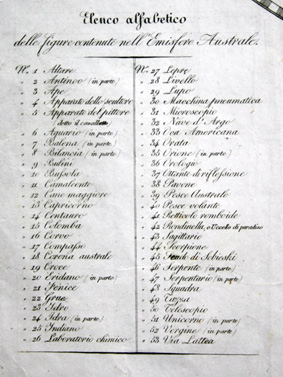 Elenco alfabetico
delle figure contenute nell'Emisfero Australe.
N.º 1 Altare
" 2 Antinoo (in parte)
" 3 Ape
" 4 Apparato dello scultore
" 5 Apparato del pittore
detto il cavalletto
" 6 Aquario (in parte)
" 7 Balena (in parte)
" 8 Bilancia (in parte)
" 9 Bulini
" 10 Bussola
" 11 Camaleonte
" 12 Cane maggiore
" 13 Capricorno
" 14 Centauro
" 15 Colomba
" 16 Corvo
" 17 Compasso
" 18 Corona australe
" 19 Croce
" 20 Eridano (in parte)
" 21 Fenice
" 22 Grue
" 23 Idro
" 24 Idra (in parte)
" 25 Indiano
" 26 Laboratorio chimico
N.º 27 Lepre
" 28 Livello
" 29 Lupo
" 30 Macchina pneumatica
" 31 Microscopio
" 32 Nave d'Argo
" 33 Oca Americana
" 34 Orata
" 35 Orione (in parte)
" 36 Orologio
" 37 Ottante di riflessione
" 38 Pavone
" 39 Pesce Australe
" 40 Pesce volante
" 41 Retticolo romboide
" 42 Rondinella, o Uccello di paradiso
" 43 Sagittario
" 44 Scorpione
" 45 Scudo di Sobieski
" 46 Serpente (in parte)
" 47 Serpentario (in parte)
" 48 Squadra
" 49 Tazza
" 50 Telescopio
" 51 Unicorno (in parte)
" 52 Vergine (in parte)
" 53 Via Lattea